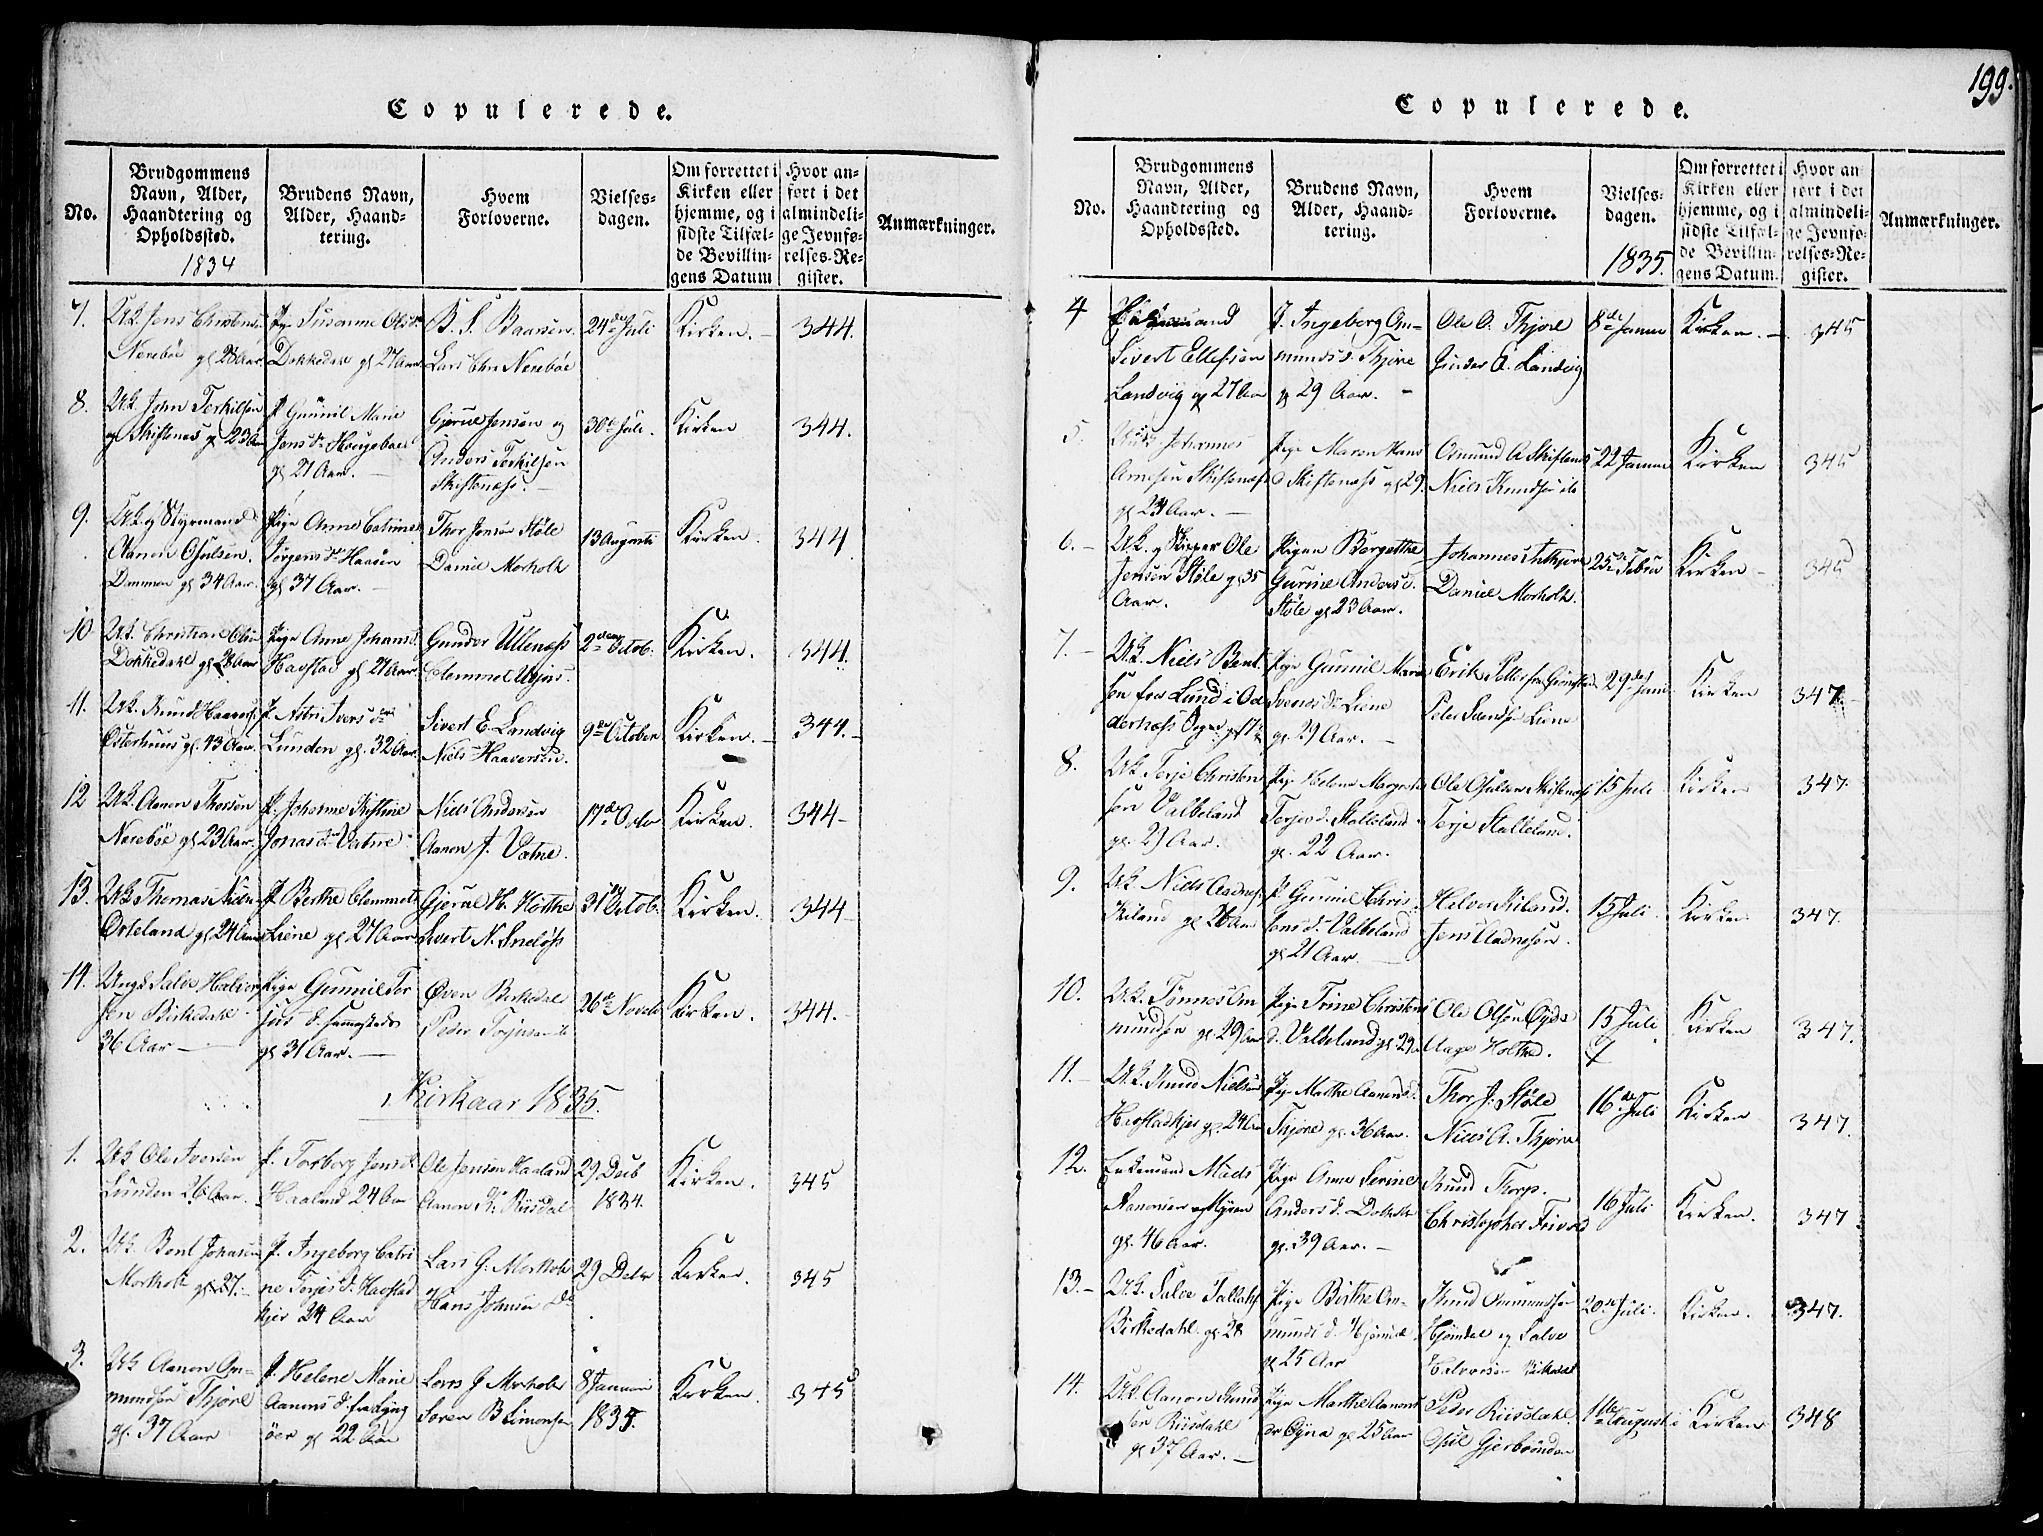 199.
Copulerede.
No.
Brudgommens
Navn, Alder,
Haandtering og
Opholdssted.
1834
Brudens Navn,
Alder, Haand-
tering.
Hvem
Forloverne.
Vielses-
dagen.
Om forrettet i
Kirken eller
hjemme, og i
sidste Tilfæl-
de Bevillin-
gens Datum
Hvor an-
ført i det
almindeli-
ge Jevnfø-
relses-Re-
gister.
Anmærkninger.
7.
Nerebøe gl 28 Aar
Pige Susanne Olsd.
Dokkedale gl 27 Aar
B. S. Baarsen
Lars Chr Nerebøe
24de Juli
Kirken.
344.
8.
UK. John Terkilsen
og Skiftenes gl 23 Aar
P Gunnil Marie
Jens d.
gl 21 Aar.
Gjerul Jensen og
Anders Terkilsen
Skiftenæs.
30 Juli.
Kirken
344.
9.
UK. og Styrmand
Aanon Osulsen
Dømmen gl 34 Aar.
Pige Anne Catrine
Jørgens d. Haaøen
gl 37 Aar.
Thor Jensen Støle
Daniel Morholt
13 Augusti
Kirken.
344
10
UK. Christian Olsen
Dokkedale gl 28 Aar
Pige Anne Johans d.
Havstad gl 21 Aar
Gunder Ullenæss
Clemmet
2den Octob.
Kirken.
344.
11.
UK. Knud Haavers.
Østerhuus gl 43 Aar.
P. Astri Ivers d.
Lunden gl 32 Aar.
Sivert E. Landvig
Niels Haaversen.
9de October
Kirken.
344.
12
UK. Aanon Thorsen
Nerebøe gl 23 Aar.
P. Johanne Kistine
Jonas d. Vatne
Niels Andersen
Aanon J. Vatne.
17de Octor
Kirken.
344
13.
UK Thomas Niels.
Østeland gl 24 Aar
P Berthe Clemmets
Liene gl 27 Aar
Gjerul H. Holthe
Sivert N. Sneløss
31 Octob.
Kirken.
344
14.
Ungk Salve Halvor
sen Birkedale
36 Aar
Pige Gunnil Ter
jus d. sammesteds
gl 31 Aar.
Øven Birkedale
Peder Terjusen
26de Novebr
Kirken.
344.
Kirkaar 1835.
1.
UK Ole Iversen
Lunden 26 Aar.
P. Torborg Jens d.
Haaland 24 Aar
Ole Jensen Haaland
Aanon K. Riisdal
29 Decb
1834.
Kirken.
345
2.
UK. Bent Johnsen
Morholt gl 27.
P. Ingeborg Catri
ne Terjes d. Havstad
kjer 24 Aar
Lars G. Morholt
Hans Johnsen do
29 Decbr
Kirken.
345
3.
UK Aanon Om-
mundsen Thjøre
gl. 37 Aar
P. Helene Marie
Aanens d. fra Ljng
øer gl 22 Aar
Lars G Morholt
Søren B Simonsen
8 Januari
1835.
Kirken.
345
Copulerede.
No.
Brudgommens
Navn, Alder,
Haandtering og
Opholdssted.
Brudens Navn,
Alder, Haand-
tering.
Hvem
Forloverne.
Vielses-
dagen.
1835.
Om forrettet i
Kirken eller
hjemme, og i
sidste Tilfæl-
de Bevillin-
gens Datum.
Hvor an
ført i det
almindeli-
ge Jevnfø-
relses-Re-
gister.
Anmærkninger.
4
Sivert Ellefsen
Landvig gl 27 Aar
P. Ingeborg Om-
munds d. Thjøre
gl 29 Aar.
Ole O. Thjøre
Gunder E. Landvig
8de Januar
Kirken.
345
5.
Johannes
Arnesen Skiftenæss
gl 24 Aar.
Pige Maren Hans
d Skiftenæss gl 29.
Omund A Skiftenæs
Niels Knudsen ib
22 Januar
Kirken
345
6.
UK. og Skipper Ole
Jensen Støle gl 35
Aar.
Pigen Bergethe
Gurine Anders d.
Støle gl 23 Aar.
Daniel Morholt.
25de Febru
Kirken
345
7.
UK. Niels Bent
sen fra Lund i Od
dernæss
Pige Gunnil Marie
Svends d. Liene
gl. 29 Aar.
Erik Petters fra Grimstad
Peder Svends. Liene
29de
Kirken
347
8.
UK Terje Christen
sen Valbeland
gl. 29 Aar.
Pige Helene Margrethe
Terjes d. Stalleland
gl. 22 Aar.
Ole Osulsen Skiftenæss
Terje Stalleland.
15 Juli
Kirken
347.
9.
UK Niels Aadnes.
Kiland gl 26 Aar
P Gunnil Chris
tens d. Valbeland
gl 21 Aar.
Halvor Kiland.
Jens Aadnesen.
15 Juli
Kirken
347.
10.
UK. Tønnes Om
mundsen gl 29 Aar
Pige Trine Christens
d. Valbeland gl 29
Ole Olsen
Aage Holthe.
15 Juli
Kirken
347.
11.
UK. Knud Nielsen
Havstadkjer gl 24 Aar
Pige Marthe Aanens d.
Thjøre gl. 36 Aar.
Thor J. Støle
Niels A. Thjøre
16de Juli
Kirken
347.
12.
Enkemand Mads
Aanonsen Myren
gl. 46 Aar.
Pige Anne Serine
Anders d. Dolholt
gl. 39 Aar.
Knud Thorp.
Christopher Frivold
16 Juli
Kirken.
347
13.
UK. Salve Tallaks.
Birkedahl. gl 28
Pige Birthe Om-
munds d. Hjømdal
gl 25 Aar
Knud Ommundsen
Hjømdal og Salve
Halvorsen Birkedal
20de Juli.
Kirken.
347.
14.
UK. Aanon Knud
sen Riisdahl
gl 37 Aar.
Pige Marthe Aanons
gl 25 Aar
Peder Riisdahl.
Augusti
Kirken
348